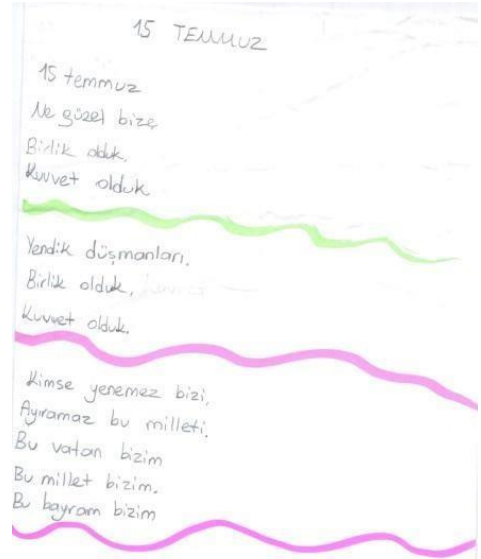 15 TEMMUZ
15 temmuz
Ne güzel bize,
Birlik olduk,
Kuvvet olduk
Yendik düşmanları,
Birlik olduk,
Kuvvet olduk,
Kimse yenemez bizi,
Ayıramaz bu milleti,
Bu vatan bizim
Bu millet bizim.
Bu bayram bizim